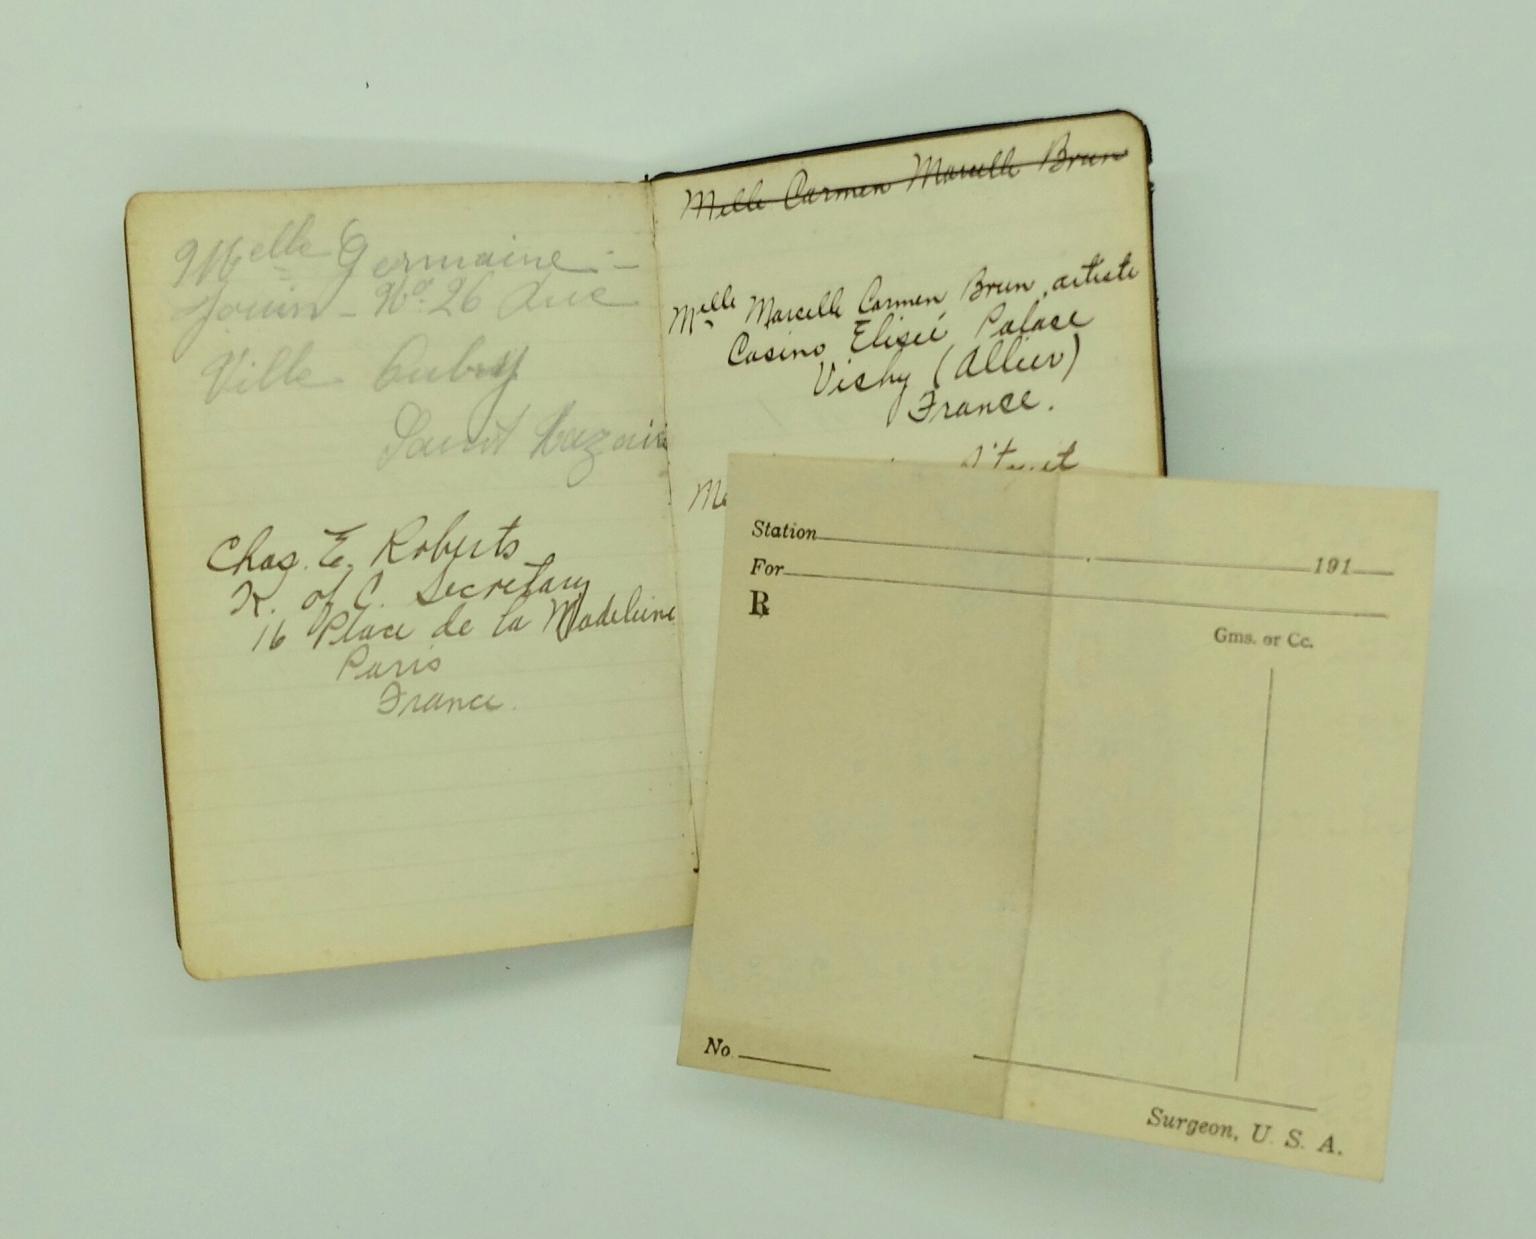 Melle Germaine -
Jouin - No. 26 Rue
Ville Aubry
Saint Nazaire
Chas. E. Roberts
K. of C. Secretary
16 Place de la Madeleine
Paris
France.
Melle Carmen Marcelle Brun
Melle Marcelle Carmen Brun, artiste
Casino Elisée Palace
Vichy (Allier)
France.
Station 191
For
℞
Gms. or Cc.
No.
Surgeon, U. S. A.